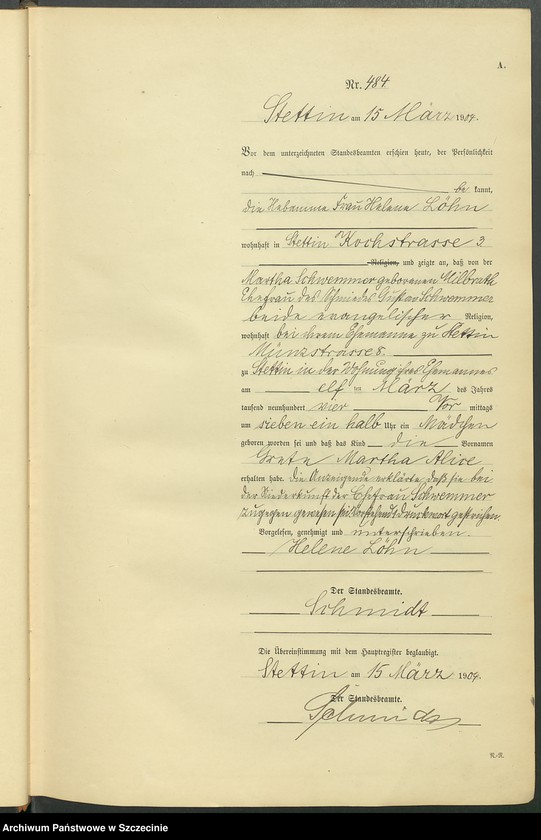 A.
Nr. 484
Stettin am 15 März 1904.
Vor dem unterzeichneten Standesbeamten erschien heute, der Persönlichkeit
nach
be kannt,
die Hebamme Frau Helene Löhn
wohnhaft in Stettin Kochstrasse 3
Religion, und zeigte an, daß von der
Martha Schwemmer geborenen Milbrath
Ehefrau des Schmiedes Gustav Schwemmer
beide evangelischer Religion,
wohnhaft bei ihrem Ehemanne zu Stettin
Münzstrasse 8.
zu Stettin in der Wohnung ihres Ehemannes
am elf ten März des Jahres
tausend neunhundert vier Vor mittags
um sieben ein halb Uhr ein Mädchen
geboren worden sei und daß das Kind die Vornamen
Grete Martha Alice
erhalten habe. Die Anzeigende erklärte, daß sie bei
der Niederkunft der Ehefrau Schwemmer
zugegen gewesen sei. Vorstehend 1 Druckwort gestrichen.
Vorgelesen, genehmigt und unterschrieben.
Helene Löhn
Der Standesbeamte.
Schmidt
Die Übereinstimmung mit dem Hauptregister beglaubigt.
Stettin am 15 März 1904.
Der Standesbeamte.
Schmidt
R.-R.
Archiwum Państwowe w Szczecinie